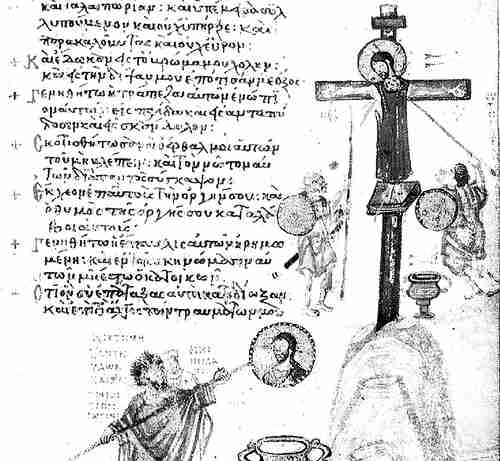 καὶ ταλαιπωρίαν· καὶ ὑπέμεινα συλ
λυπούμενον καὶ οὐχ ὑπῆρξε· καὶ
παρακαλοῦντας καὶ οὐχ εὗρον·
Καὶ ἔδωκαν εἰς τὸ βρῶμά μου χολήν·
καὶ εἰς τὴν δίψαν μου ἐπότισάν με ὄξος
Γενηθήτω ἡ τράπεζα αὐτῶν ἐνώπι
ον αὐτῶν εἰς παγίδα καὶ εἰς ἀνταπό
δοσιν καὶ εἰς σκάνδαλον·
Σκοτισθήτωσαν οἱ ὀφθαλμοὶ αὐτῶν
τοῦ μὴ βλέπειν· καὶ τὸν νῶτον αὐ
τῶν διὰ παντὸς σύγκαμψον·
Ἔκχεον ἐπ' αὐτοὺς τὴν ὀργήν σου· καὶ
ὁ θυμὸς τῆς ὀργῆς σου καταλά
βοι αὐτούς·
Γενηθήτω ἡ ἔπαυλις αὐτῶν ἠρημω
μένη· καὶ ἐν τοῖς σκηνώμασιν αὐ
τῶν μὴ ἔστω ὁ κατοικῶν·
Ὅτι ὃν σὺ ἐπάταξας αὐτοὶ κατεδίωξαν·
καὶ ἐπὶ τὸ ἄλγος τῶν τραυμάτων μου